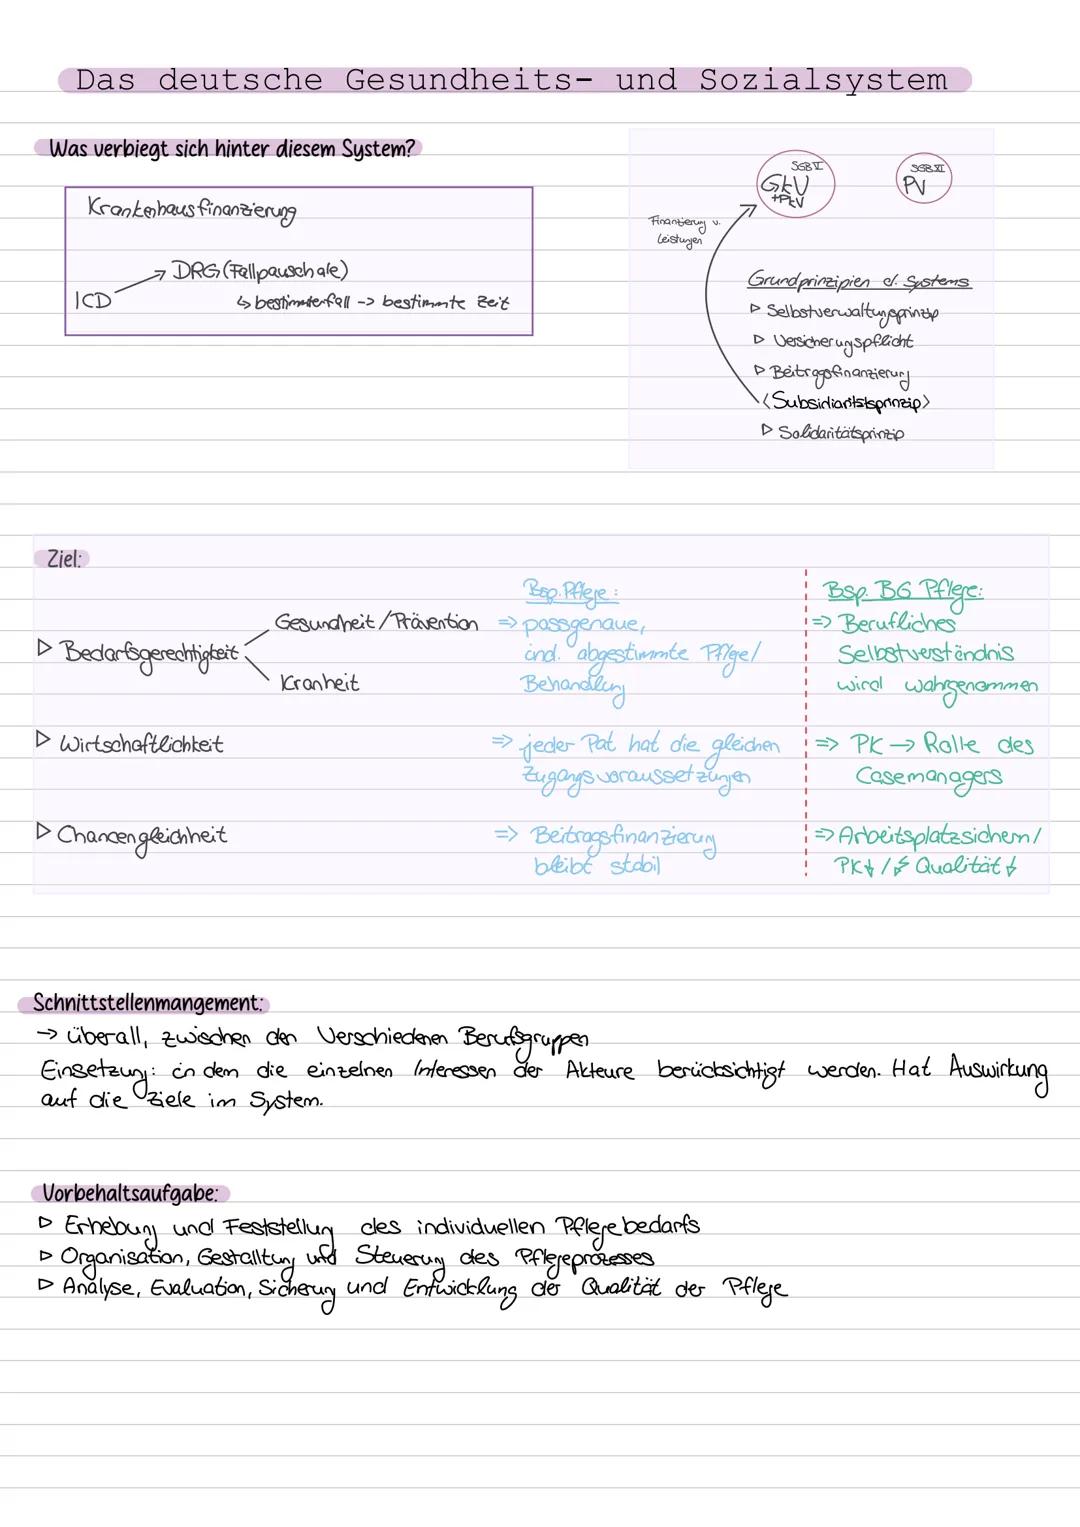 Das deutsche Gesundheits- und Sozialsystem
Was verbiegt sich hinter diesem System?
Krankenhausfinanzierung
ICD → DRG (Fallpauschale)
↳ bestimmterfall -> bestimmte Zeit
SGB V
GKV
+PKV
SGB XI
PV
Finanzierung v.
Leistungen
Grundprinzipien d. Systems
▷ Selbstverwaltungsprinzip
▷ Versicherungspflicht
▷ Beitragsfinanzierung
<Subsidiaritätsprinzip>
▷ Solidaritätsprinzip
Ziel:
▷ Bedarfsgerechtigkeit
Gesundheit/Prävention
Kranheit
Bsp. Pflege:
=> passgenaue,
ind. abgestimmte Pflge/
Behandlung
Bsp. BG Pflege:
=> Berufliches
Selbstverständnis
wird wahrgenommen
▷ Wirtschaftlichkeit
=> jeder Pat hat die gleichen
Zugangsvoraussetzungen
=> PK → Rolle des
Casemanagers
▷ Chancengleichheit
=> Beitragsfinanzierung
bleibt stabil
=> Arbeitsplatzsichern/
PK↓ / ⚡ Qualität ↓
Schnittstellenmangement:
→ überall, zwischen den Verschiedenen Berufsgruppen
Einsetzung: in dem die einzelnen Interessen der Akteure berücksichtigt werden. Hat Auswirkung
auf die Ziele im System.
Vorbehaltsaufgabe:
▷ Erhebung und Feststellung des individuellen Pflegebedarfs
▷ Organisation, Gestalltung und Steuerung des Pflegeprozesses
▷ Analyse, Evaluation, Sicherung und Entwicklung der Qualität der Pflege